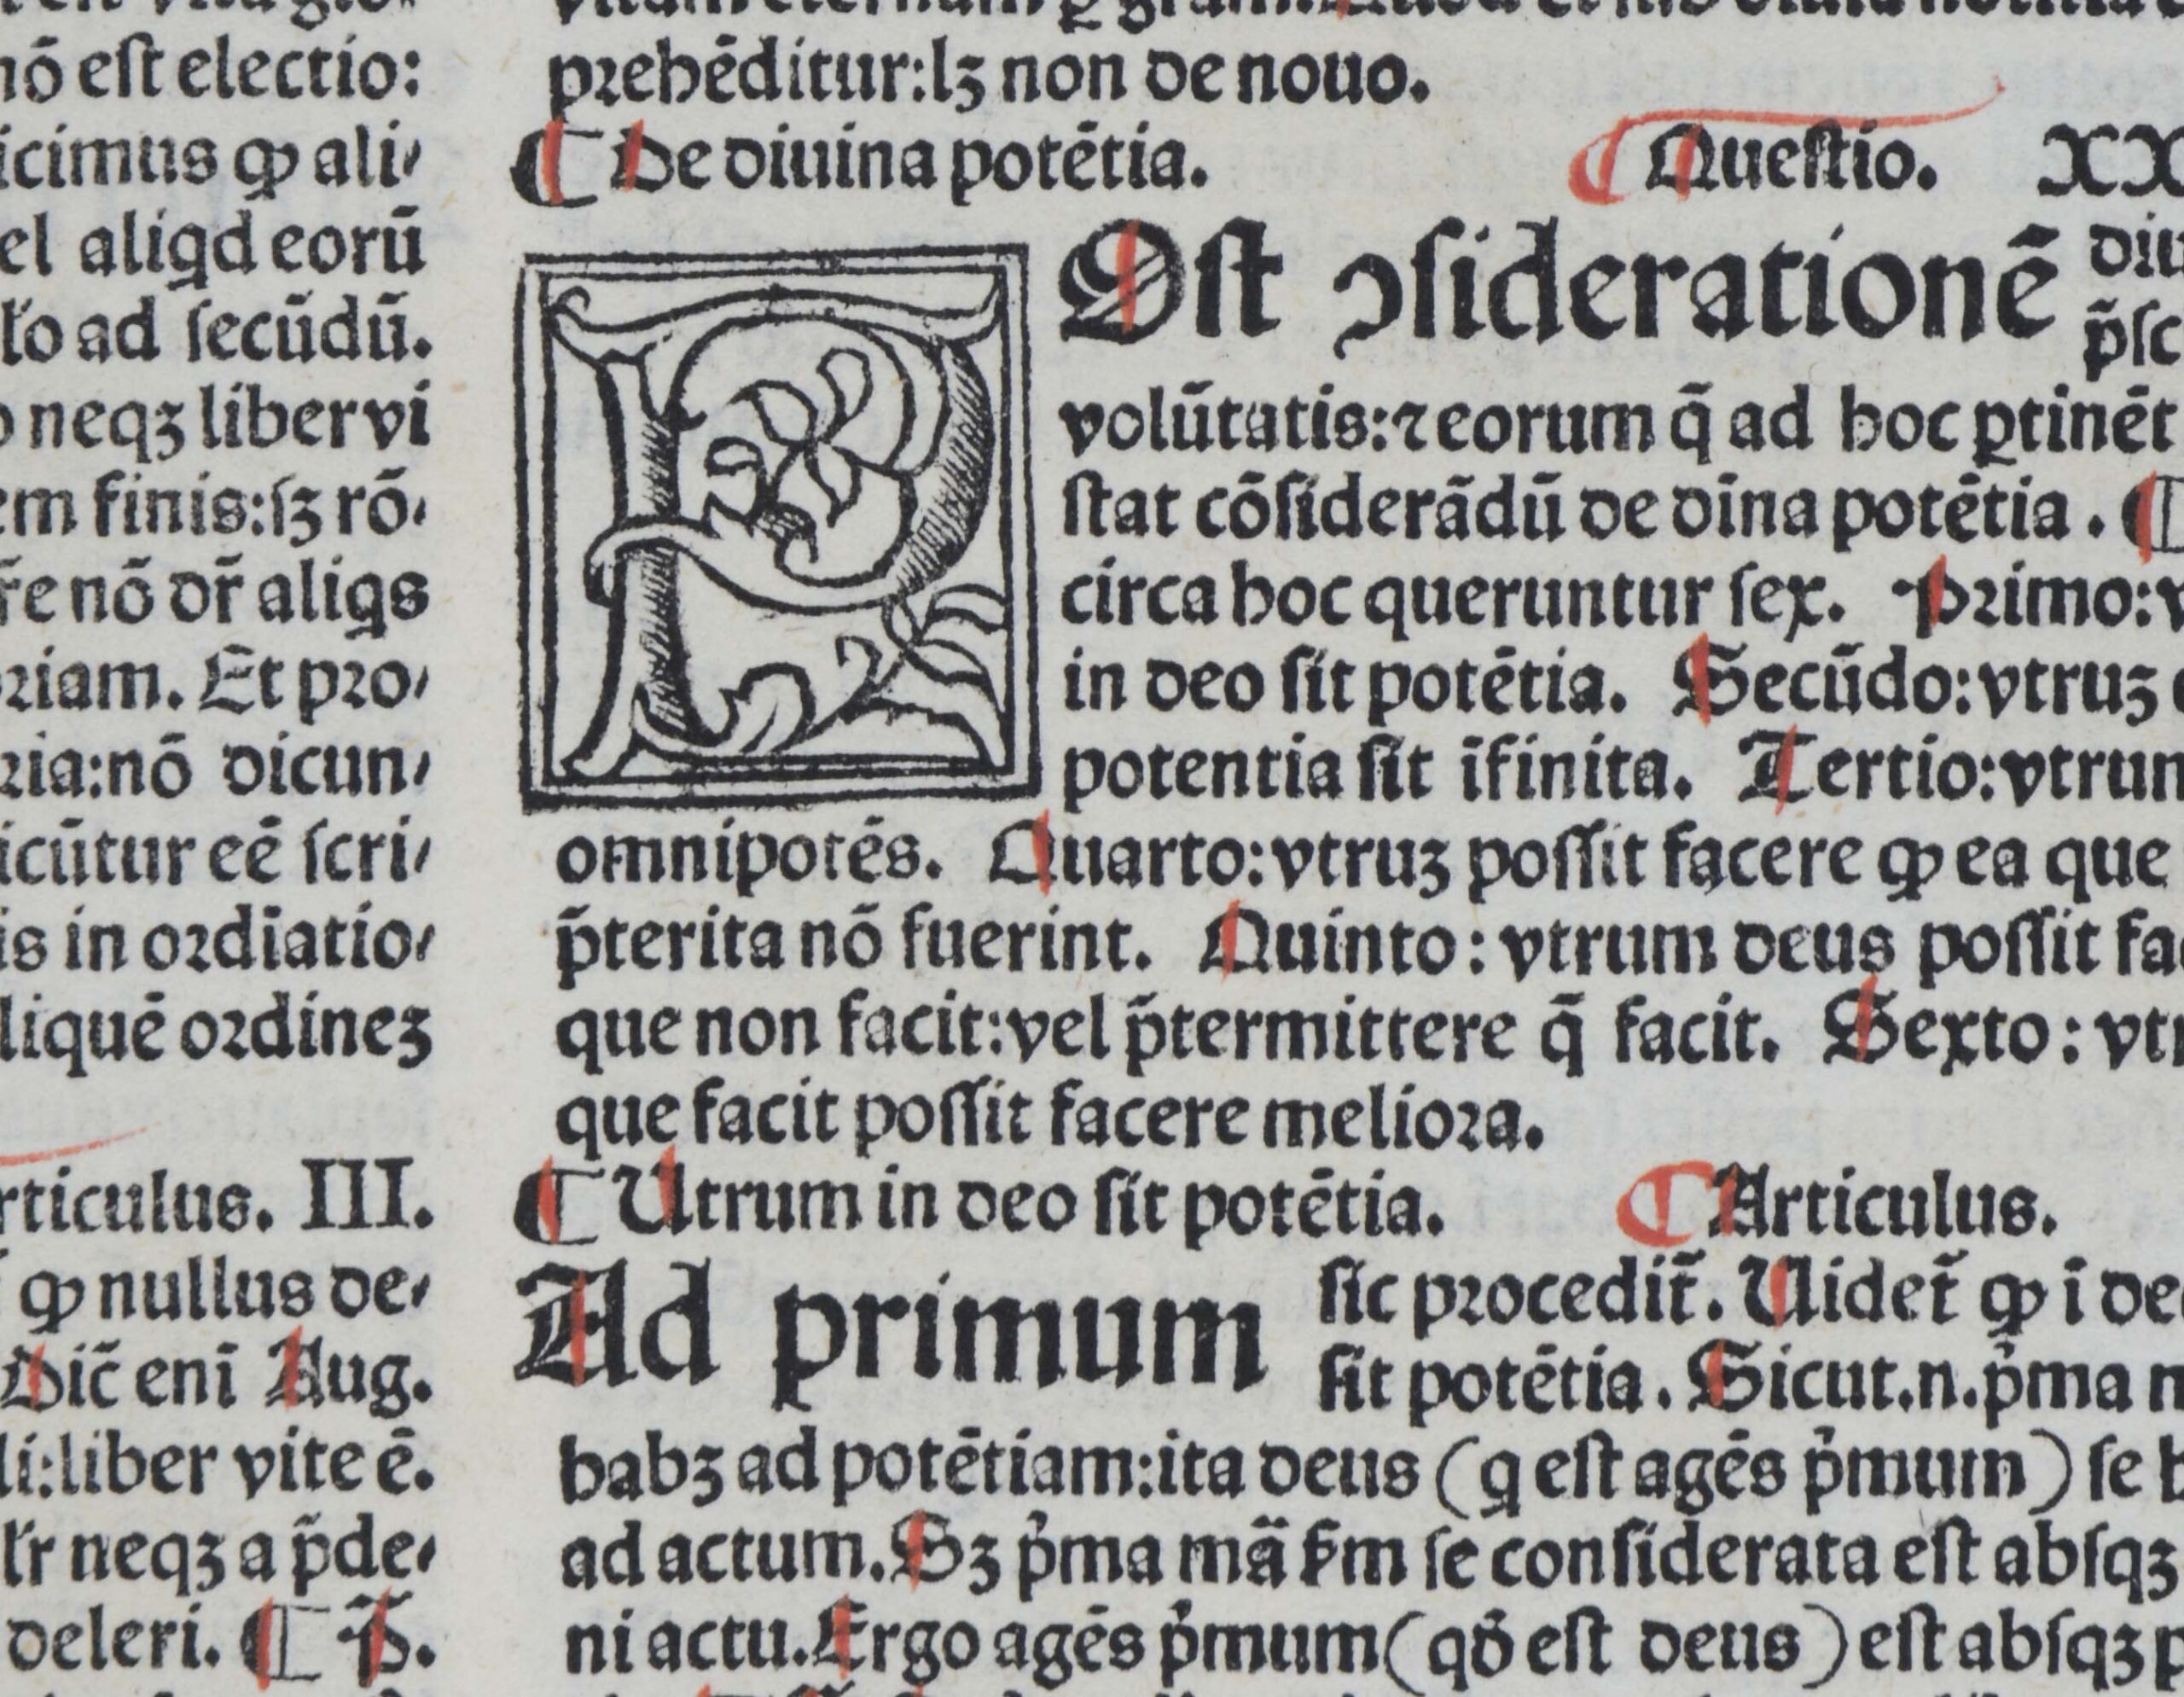 nō eſt electio:
icimus ꝙ ali⸗
el aliqd eorū
lo ad ſecūdū.
neqꝫ liber vi
em finis:ſꝫ rō⸗
r̄e nō dr̄ aliqs
riam. Et pꝛo⸗
ria:nō dicun⸗
icūtur eē ſcri⸗
is in oꝛdīatio⸗
liquē oꝛdineꝫ
rticulus. III.
ꝙ nullus de⸗
Dic̄ eni Aug.
li:liber vite ē.
neqꝫ a p̄de⸗
deleri. ¶ P̄.
pꝛehēditur:lꝫ non de nouo.
¶ De diuina potētia. ¶ Queſtio. XX
POſt ꝯſiderationē diu
p̄ſc
volūtatis:⁊ eorum q̄ ad hoc ꝑtinēt
ſtat cōſiderādū de dīna potētia. ¶
circa hoc queruntur ſex. Pꝛimo:v
in deo ſit potētia. Secūdo:vtruꝫ
potentia ſit īfinita. Tertio:vtrun
omnipotēs. Quarto:vtruꝫ poſſit facere ꝙ ea que
p̄terita nō fuerint. Quinto: vtrum deus poſſit fa
que non facit:vel p̄termittere q̄ facit. Sexto: vt
que facit poſſit facere melioꝛa.
¶ Utrum in deo ſit potētia. ¶ Articulus.
Ad primum ſic pꝛocedit̄. Uidet̄ ꝙ i de
ſit potētia. Sicut.n.pͥma
habꝫ ad potētiam:ita deus (q eſt agēs pͥmum) ſe h
ad actum. Sꝫ pͥma mā ẜm ſe conſiderata eſt abſqꝫ
ni actu. Ergo agēs pͥmum (qđ eſt deus) eſt abſqꝫ p